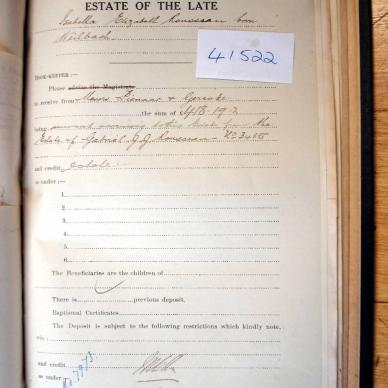 ESTATE OF THE LATE
Isabella Elizabeth Rousseau born
Heilbach
41522
BOOK-KEEPER:—
Please advise the Magistrate
to receive from Messrs & Gericke
the sum of £418-19-2
being amount accruing to this Estate from the
Estate of Gabriel J J Rousseau - No 3405
and credit estate
as under:—
1.
2.
3.
4.
5.
6.
The Beneficiaries are the children of
There is previous deposit.
Baptismal Certificates
The Deposit is subject to the following restrictions which kindly note,
viz.:
and credit
as under:—